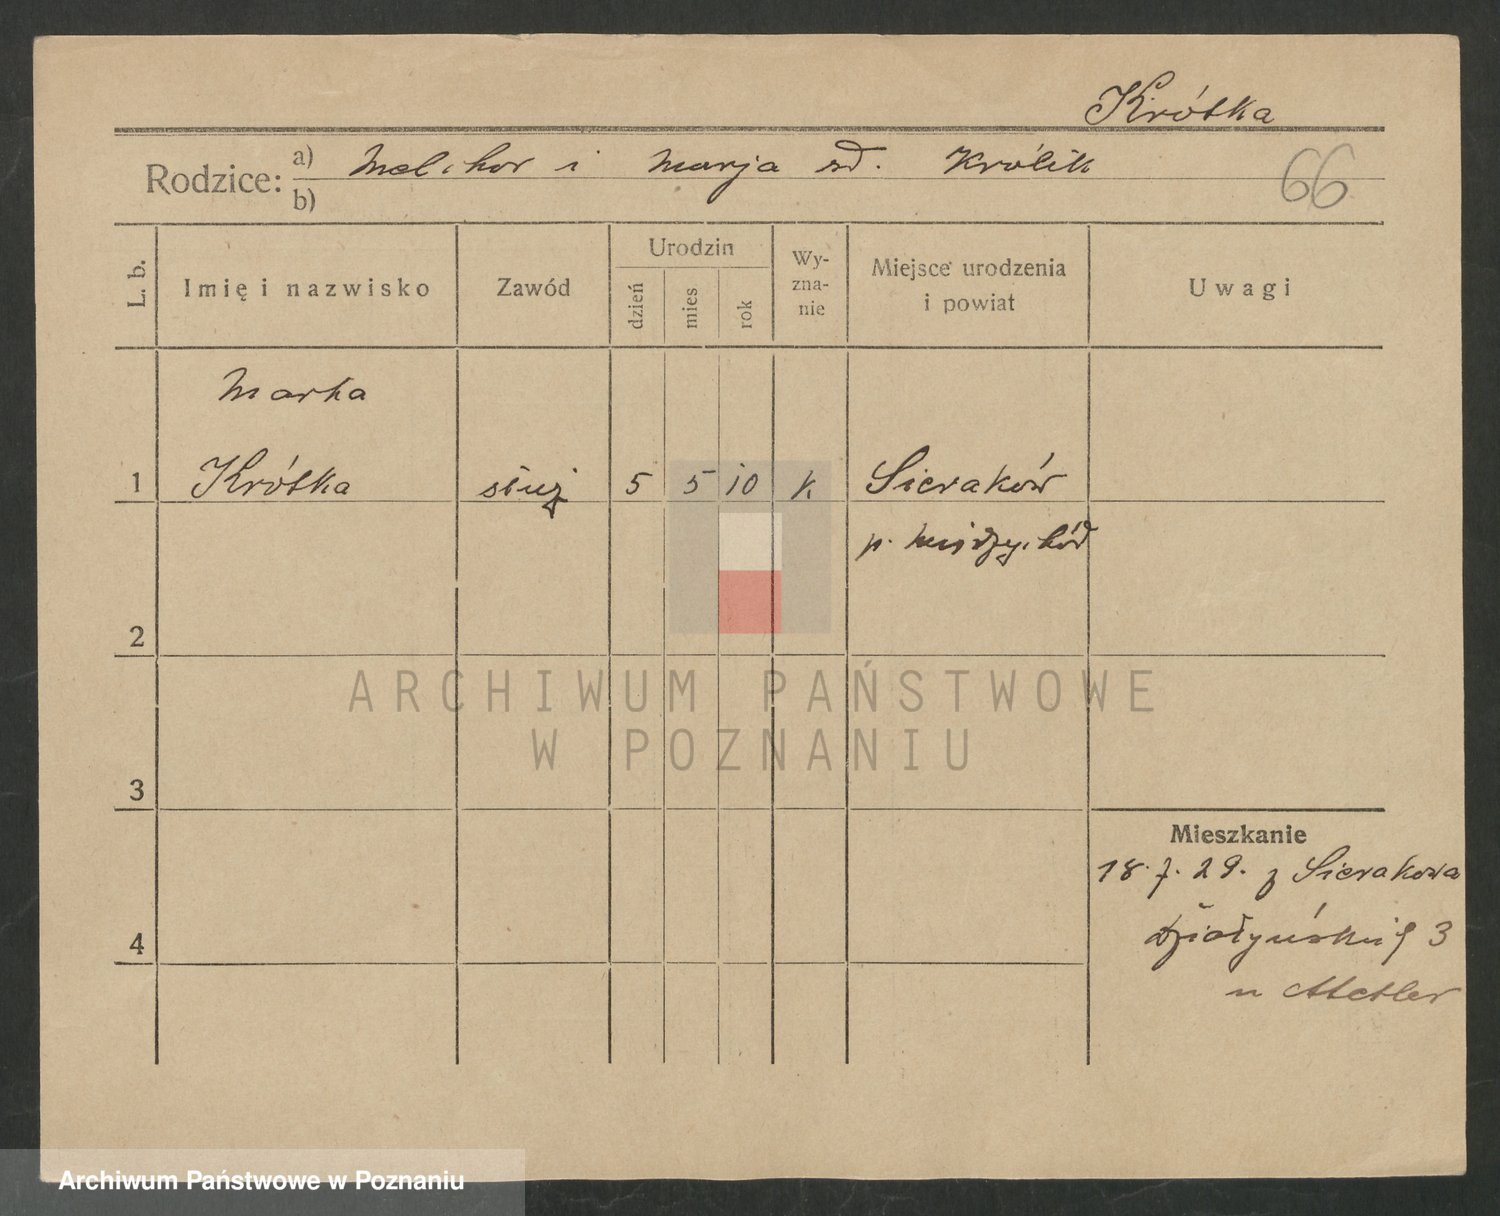 Krótka
Rodzice: a) Melchor i Marja zd. Królik
b)
66
L. b.
Imię i nazwisko
Zawód
Urodzin
dzień
mies
rok
Wy-
zna-
nie
Miejsce urodzenia
i powiat
Uwagi
Marta
1 Krótka służ 5 5 10 k. Sieraków
p. Międzychód
2
ARCHIWUM PAŃSTWOWE
W POZNANIU
3
Mieszkanie
18. 7. 29. z Sierakowa
4
Działyńskich 3
u Metler
Archiwum Państwowe w Poznaniu